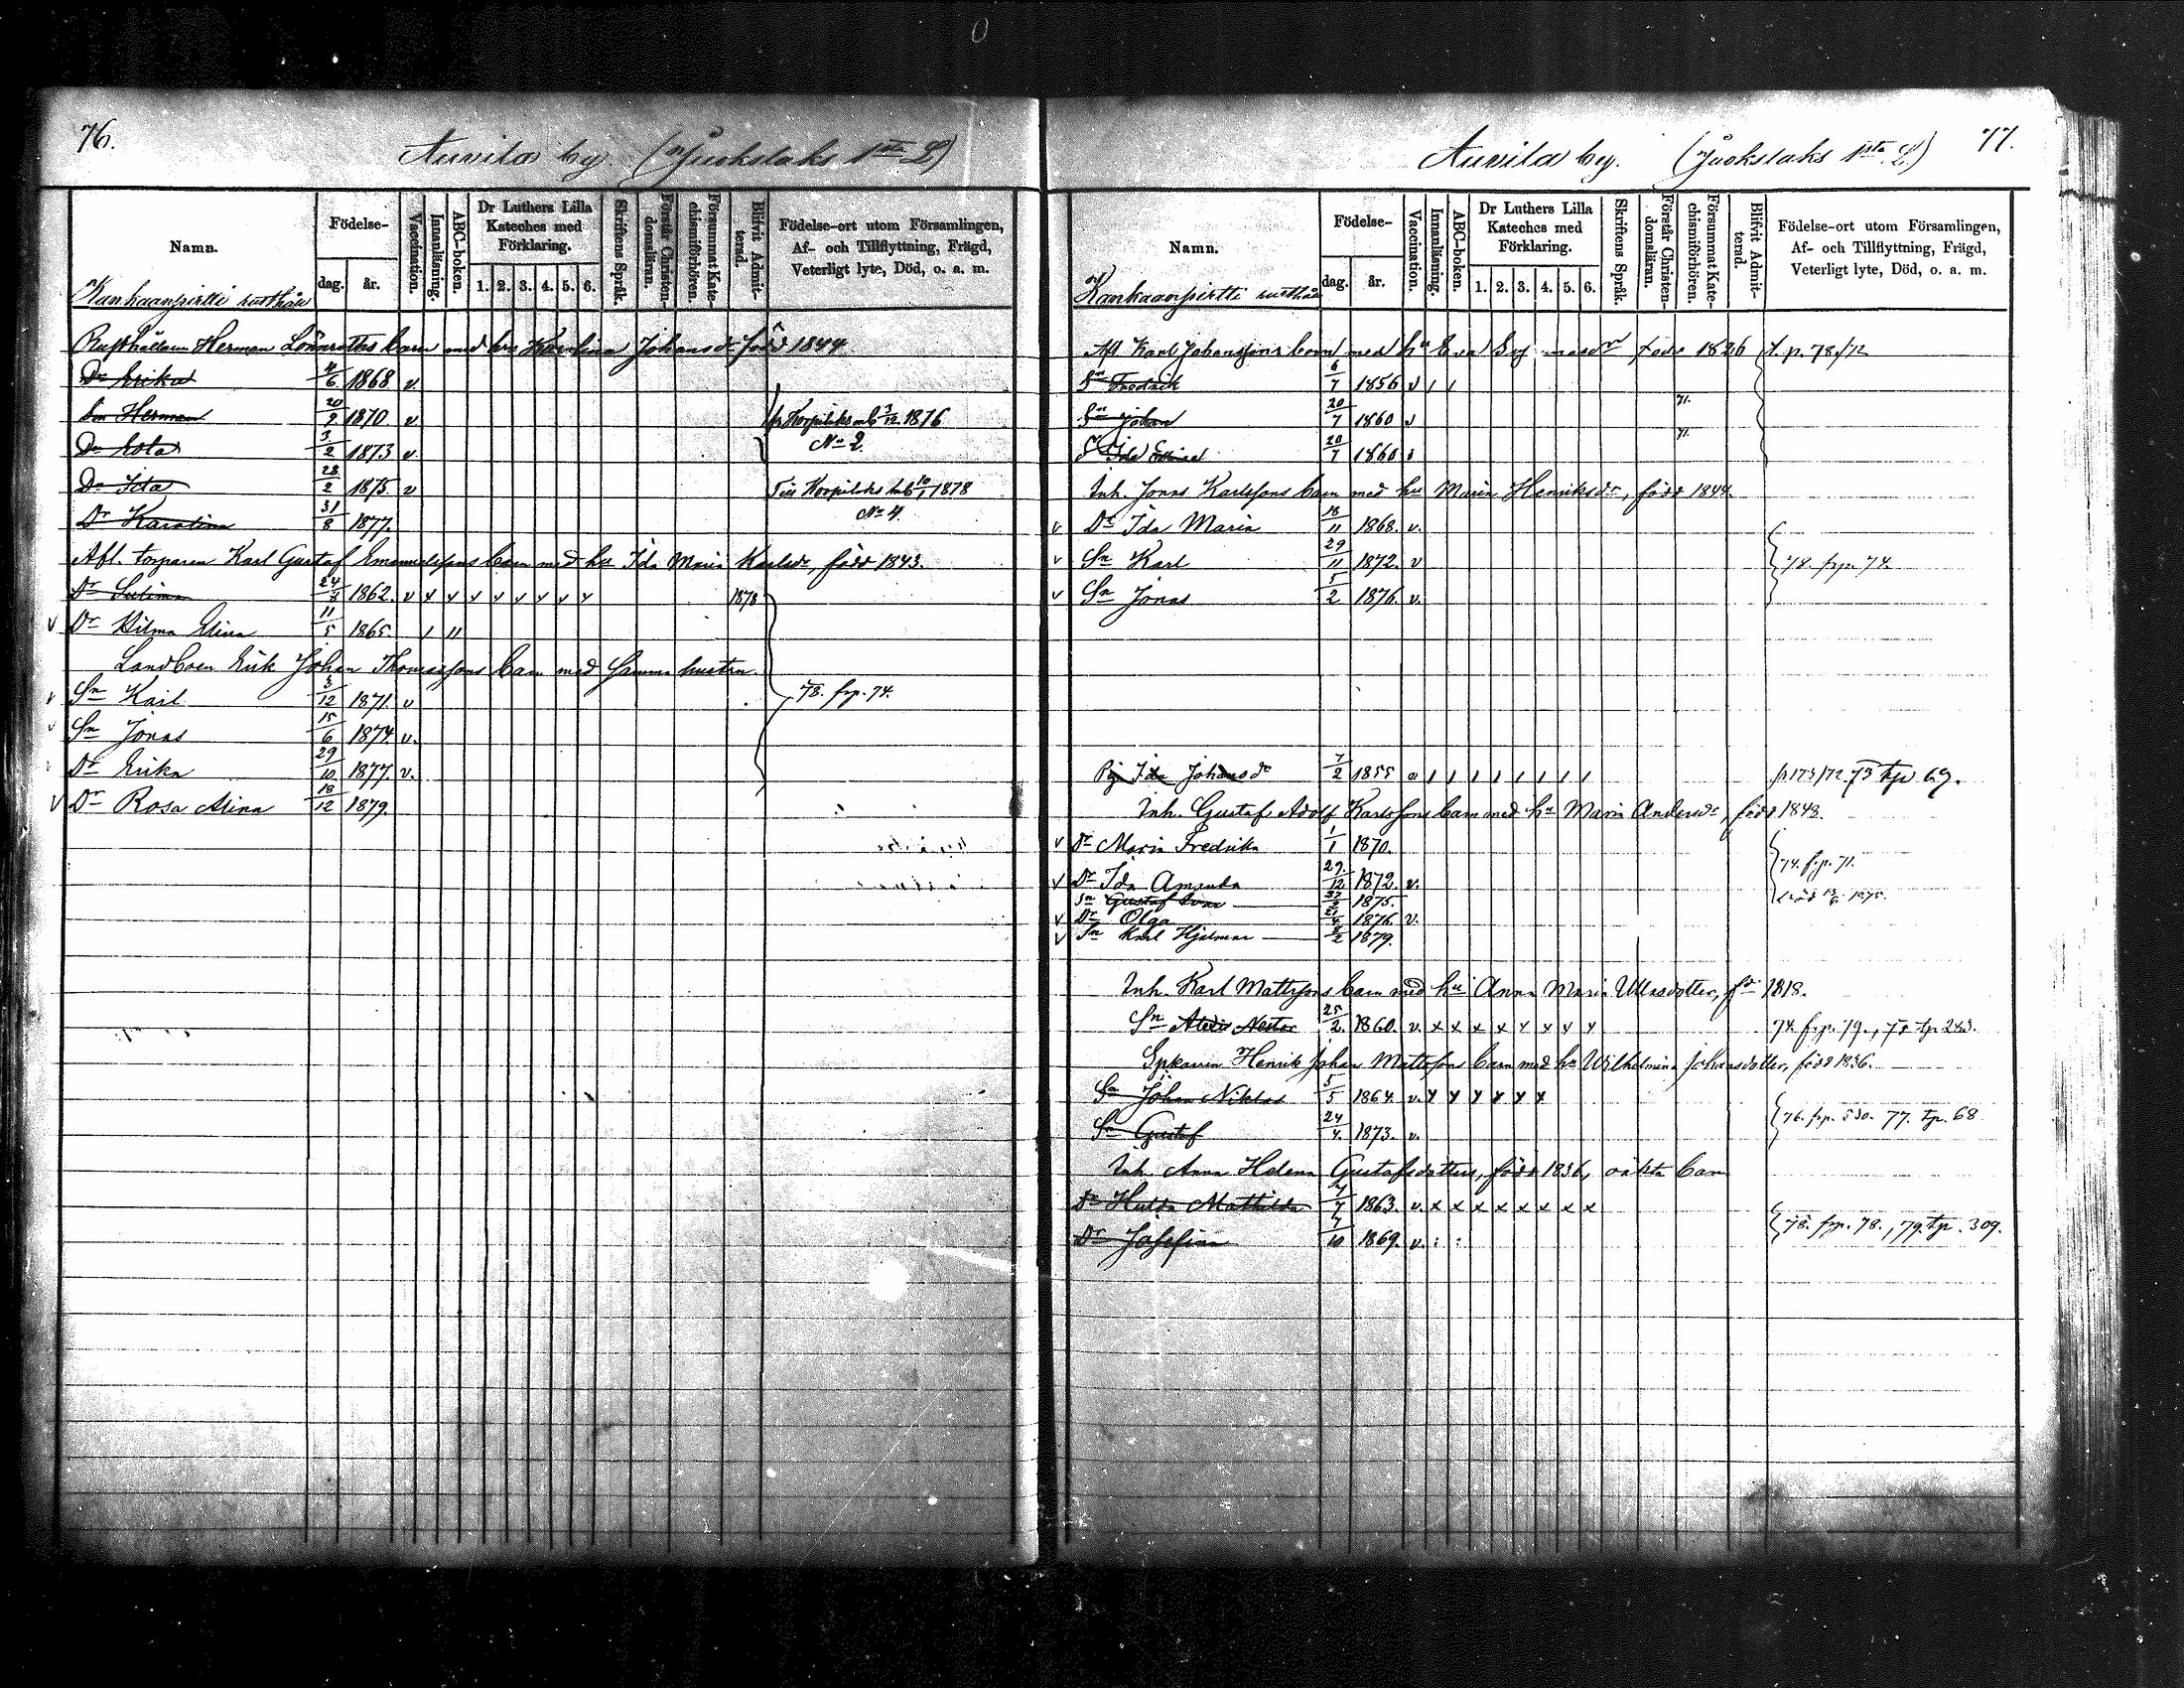 76.
Auvila by. (Juokslaks 1sta L)
Namn.
Födelse-
dag.
år.
Vaccination.
Innanläsning.
ABC-boken.
Dr Luthers Lilla Kateches med Förklaring.
1. 2. 3. 4. 5. 6.
Skriftens Språk.
Förstår Christendomsläran.
Försummat Katechismiförhören.
Blifvit Admitterad.
Födelse-ort utom Församlingen, Af- och Tillflyttning, Frägd, Veterligt lyte, Död, o. a. m.
Kankaanpirtti rusthåll
Rusthållaren Herman Lönnroths barn med hru Karolina Johansdr född 1844
Dr Erika 4/6 1868 v
Sn Herman 20/9 1870 v fr Korpilaks mb 3/12 1876
Dr Lota 3/2 1873 v No 2.
Dr Ida 28/2 1875 v Till Korpilaks mb 10/1 1878
Dr Karolina 31/8 1877. No 4.
Afl. torparen Karl Gustaf Emanuelssons barn med hu Ida Maria Karlsdr, född 1843.
Dr 24/8 1862. v v v v v v v v v 1878
v Dr Hilma Elina 11/5 1865 / //
Landboen Erik Johan Thomassons barn med samma hustru.
v Sn Karl 3/12 1871 v 78. frp. 74.
v Sn Jonas 15/6 1874 v.
Dr Erika 29/10 1877. v.
v Dr Rosa Alina 18/12 1879.
77.
Auvila by. (Juokslaks 1sta L.)
Namn.
Födelse-
dag.
år.
Vaccination.
Innanläsning.
ABC-boken.
Dr Luthers Lilla Kateches med Förklaring.
1. 2. 3. 4. 5. 6.
Skriftens Språk.
Förstår Christendomsläran.
Försummat Katechismiförhören.
Blifvit Admitterad.
Födelse-ort utom Församlingen, Af- och Tillflyttning, Frägd, Veterligt lyte, Död, o. a. m.
Kankaanpirtti rusthåll
Afl Karl Johanssons barn med hu Eva född 1826 t. p. 78/72
Sn Fredrik 6/7 1856 v / /
Sn Johan 20/7 1860 v 71.
Ida 20/7 1860 v 71.
Inh. Jonas Karlssons barn med hu Maria Henriksdr, född 1844.
v Dr Ida Maria 18/11 1868. v.
v Sn Karl 29/11 1872. v 78. frp. 74.
v Sn Jonas 5/2 1876. v.
Pig Ida Johansdr 7/2 1855 v / / / / / / / / p173/72. 73 tp 69.
Inh. Gustaf Adolf Karlssons barn med hu Maria Andersdr, född 1843.
v Dr Maria Fredrika 1/1 1870. 74. frp. 71.
v Dr Ida Amanda 29/12 1872. v.
Sn Gustaf 1875. 1875.
v Dr Olga 1876. v.
v Sn Karl Hjalmar 1879.
Inh. Karl Mattssons barn med hu Anna Maria Ullasdotter, fdr 1818.
Sn Nestor 25/2. 1860. v. x x x x x x x x 74. frp. 79., 78 tp 243.
Spkaren Henrik Johan Mattssons barn med hu Wilhelmina Johansdotter, född 1836.
Sn Johan Niklas 5/5 1864 v. x x x x x x
Sn Gustaf 24/4. 1873. v. 76. frp. 530. 77. tp. 68
Inh. Anna Helena Gustafsdotters, född 1836, oäkta barn
Dr Hulda Mathilda 7/7 1863. v. x x x x x x x x
Dr Josefina 7/10 1869. v. : : 78. frp. 78., 79. tp. 309.